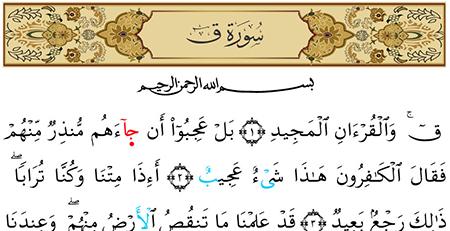 سُورَةُ ق
بسم الله الرحمن الرحيم
قٓۚ وَالْقُرْءَانِ الْمَجِيدِ ﴿١﴾ بَلْ عَجِبُوٓا۟ أَن جَآءَهُم مُّنذِرٌ مِّنْهُمْ
فَقَالَ الْكَٰفِرُونَ هَٰذَا شَىْءٌ عَجِيبٌ ﴿٢﴾ أَءِذَا مِتْنَا وَكُنَّا تُرَابًاۖ
ذَٰلِكَ رَجْعٌۢ بَعِيدٌ ﴿٣﴾ قَدْ عَلِمْنَا مَا تَنقُصُ الْأَرْضُ مِنْهُمْۖ وَعِندَنَا